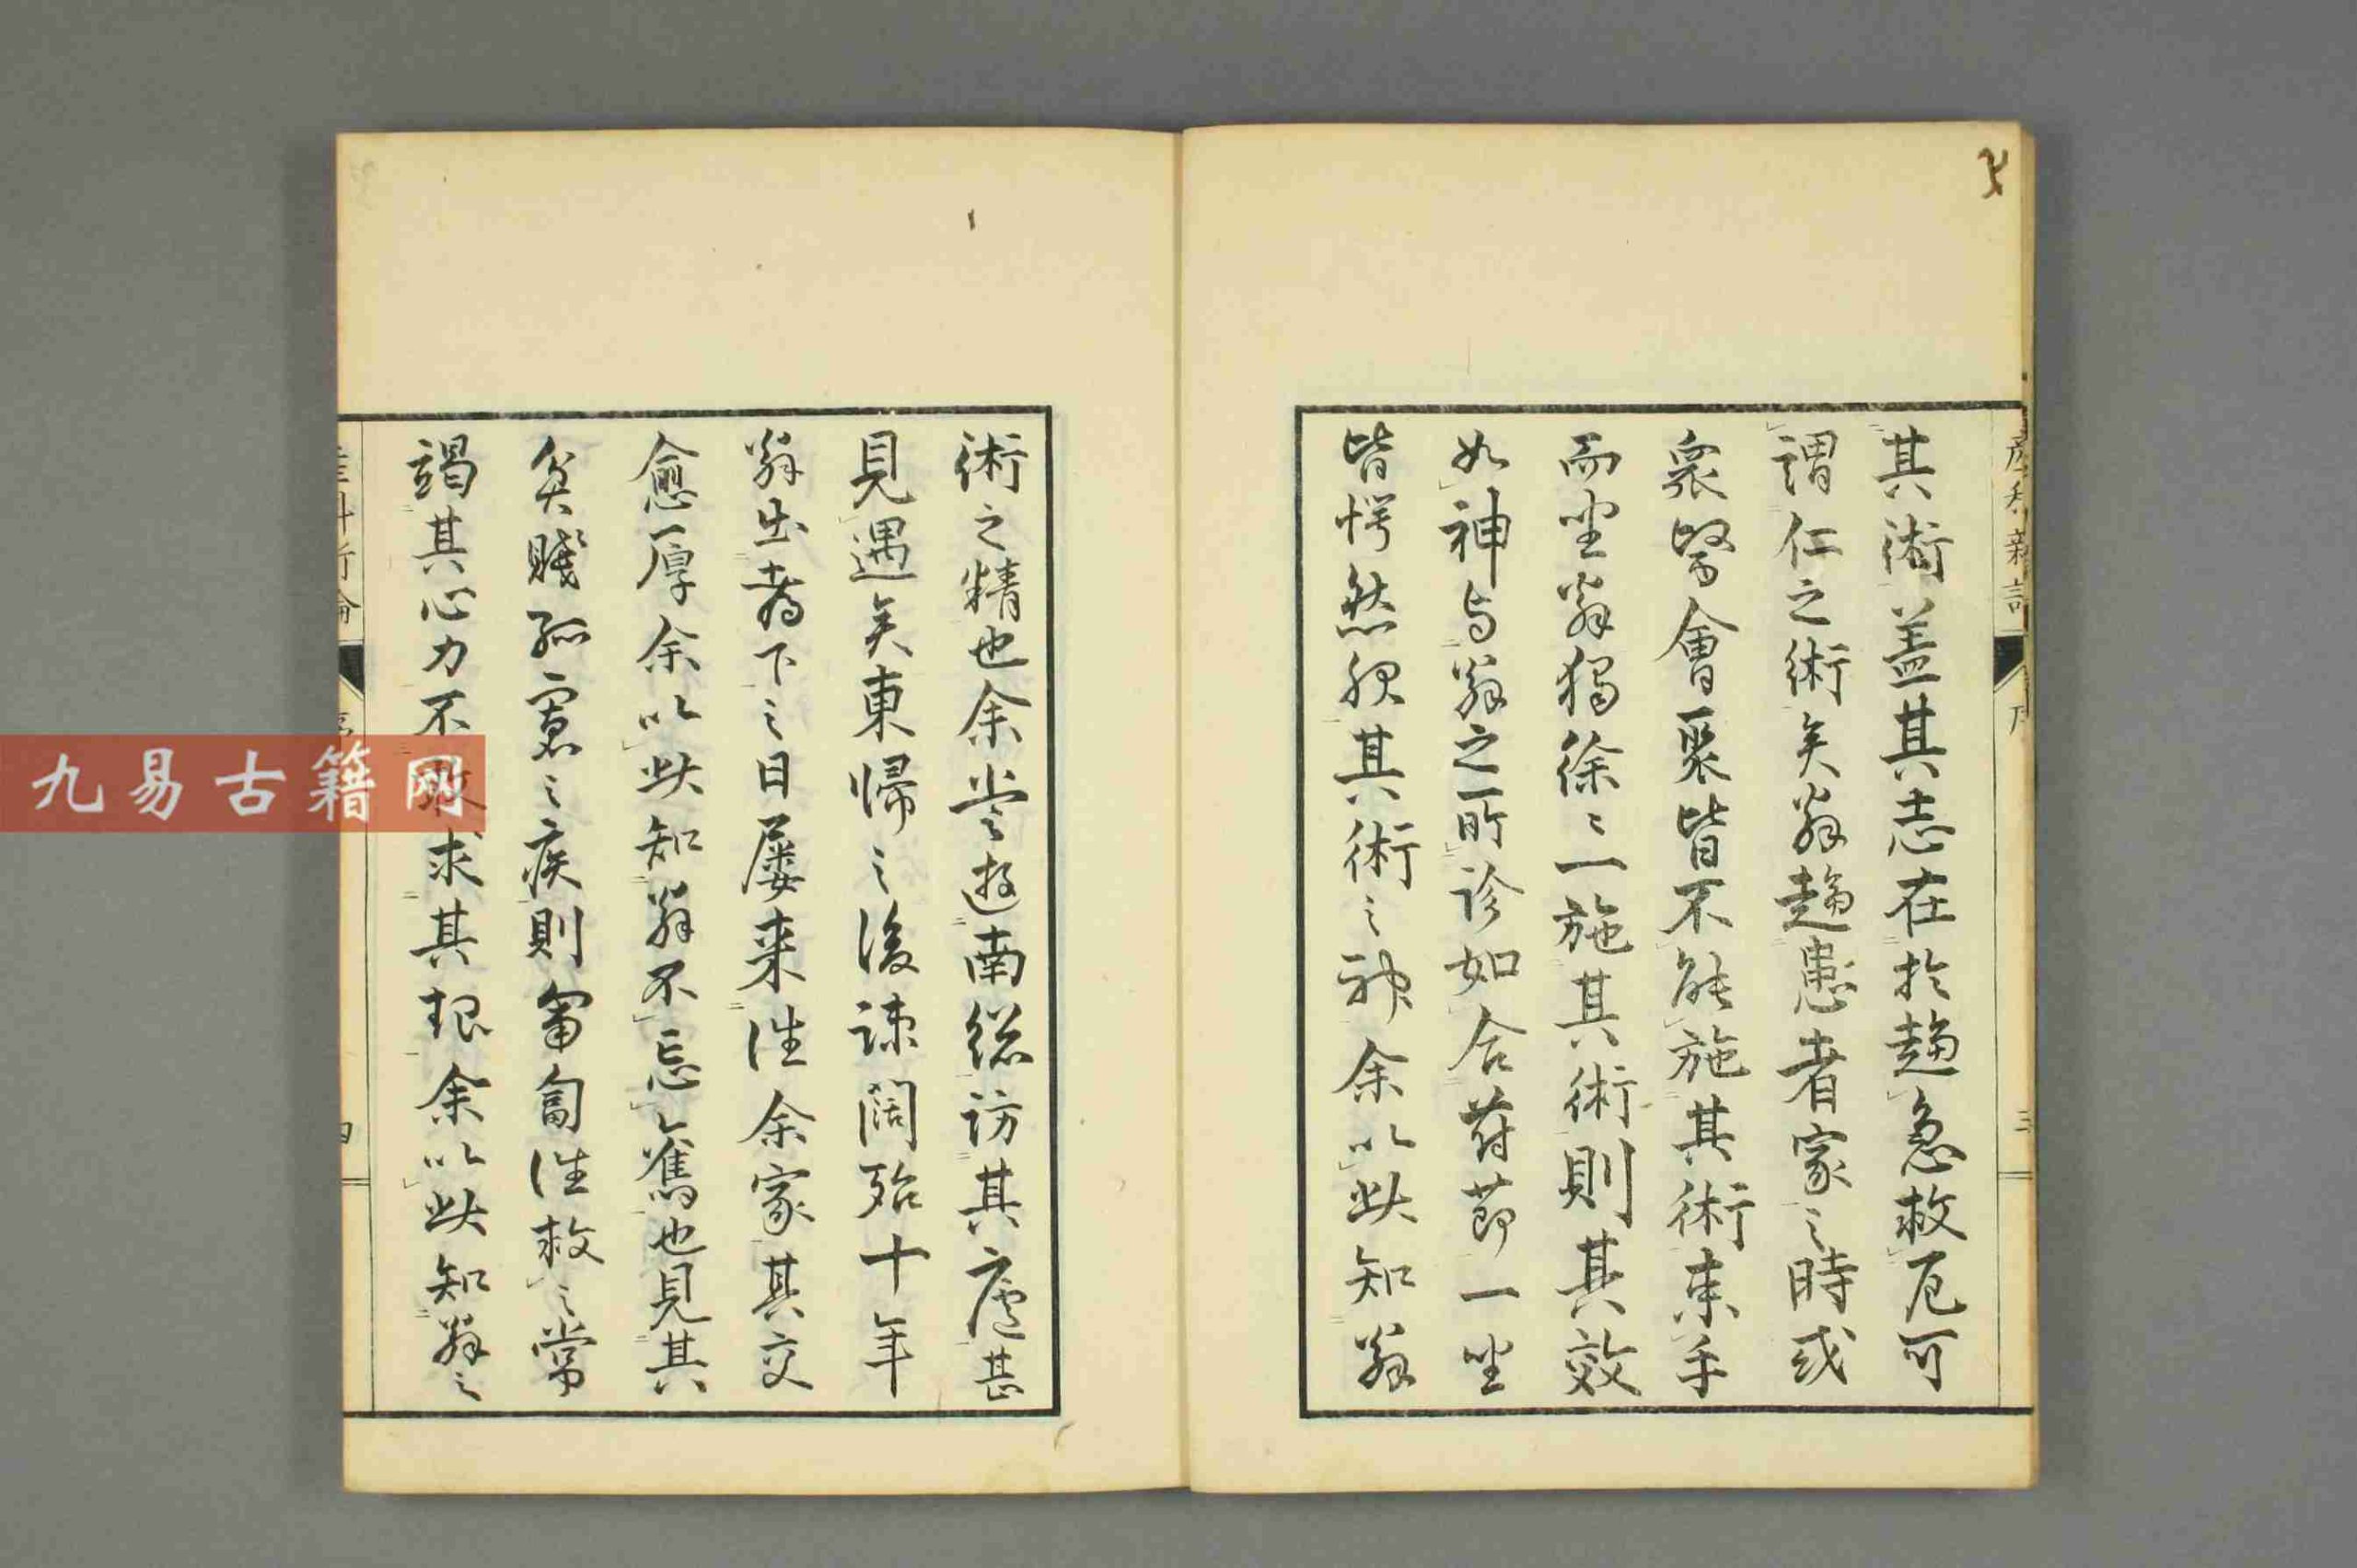 其術蓋其志在於趨急救厄可
謂仁之術矣翁趨患者家之時或
衆醫會聚皆不能施其術束手
而坐翁獨徐〻一施其術則其效
如神与翁之所診如合符節一坐
皆愕然服其術之神余以此知翁
術之精也余嘗遊南總訪其廬甚
見遇矣東歸之後疎闊殆十年
翁出都下之日屢来往余家其交
愈厚余以此知翁不忘舊也見其
貧賤孤寡之疾則匍匐往救之常
竭其心力不敢求其報余以此知翁之
產科新論
序
三
九易古籍网